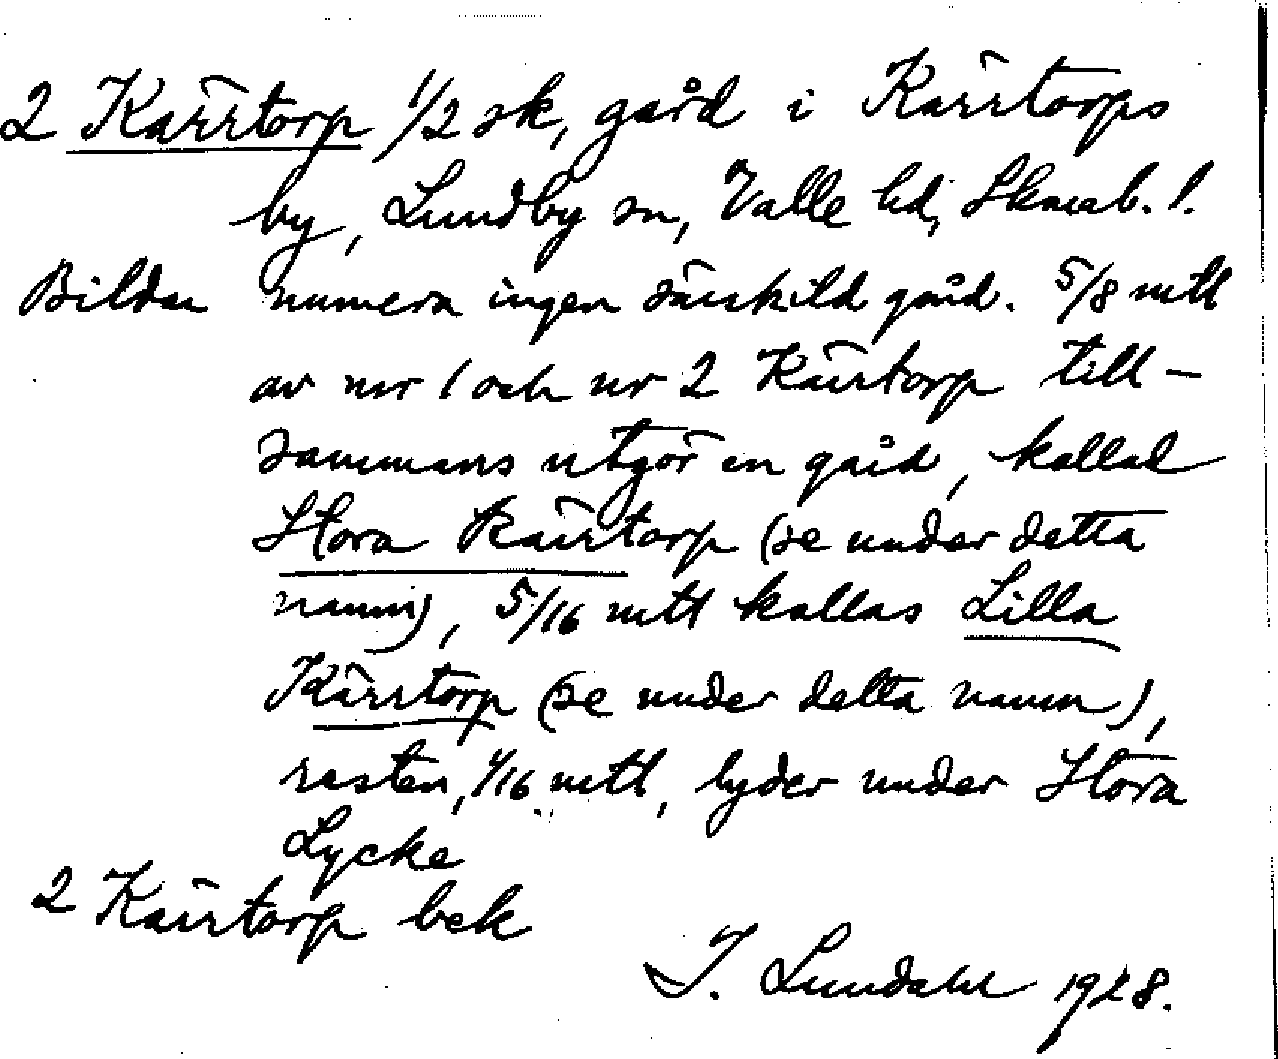 2 Kärrtorp 1/2 sk, gård i Kärrtorps
by, Lundby sn, Valle hd, Skarab. l.
Bildar numera ingen särskild gård. 5/8 mtl
av nr 1 och nr 2 Kärrtorp till-
sammans utgör en gård, kallad
Stora Kärrtorp (se under detta
namn), 5/16 mtl kallas Lilla
Kärrtorp (se under detta namn),
resten, 1/16 mtl, lyder under Stora
Lycke
2 Kärrtorp bek
I. Lundahl 1928.